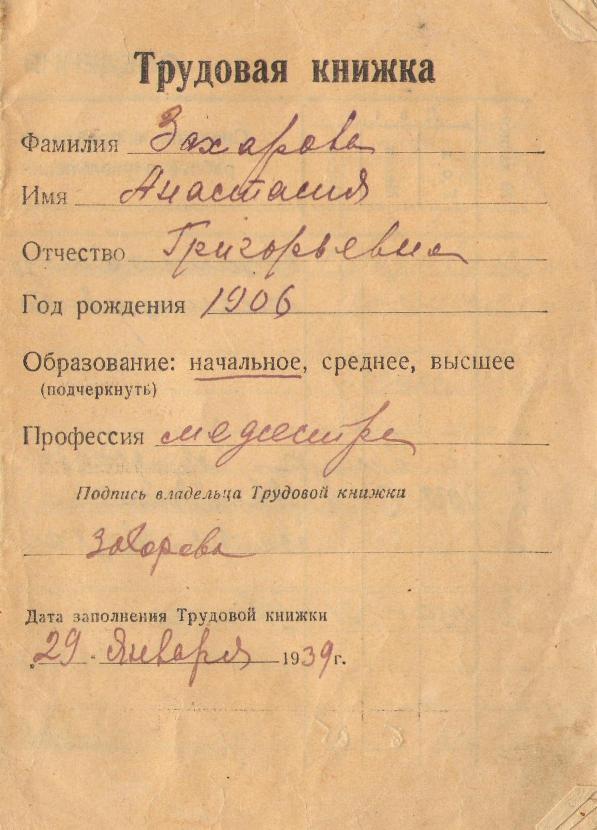 Трудовая книжка
Фамилия Захарова
Имя Анастасия
Отчество Григорьевна
Год рождения 1906
Образование: начальное, среднее, высшее
(подчеркнуть)
Профессия медсестра
Подпись владельца Трудовой книжки
Захарова
Дата заполнения Трудовой книжки
29 - января 1939 г.